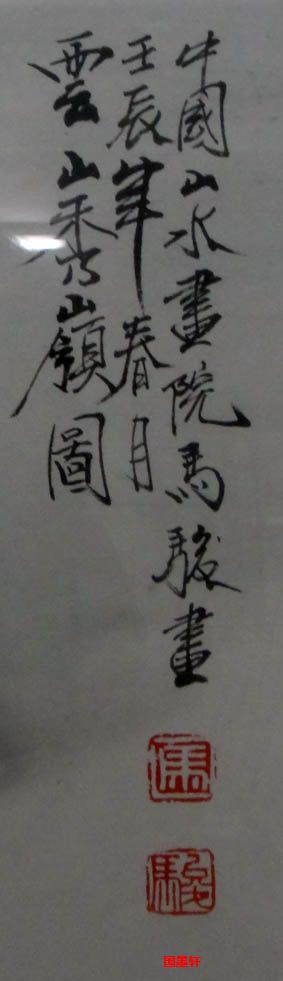 雲山秀嶺圖
壬辰年春月
中國山水畫院馬駿畫
馬
駿
国墨轩